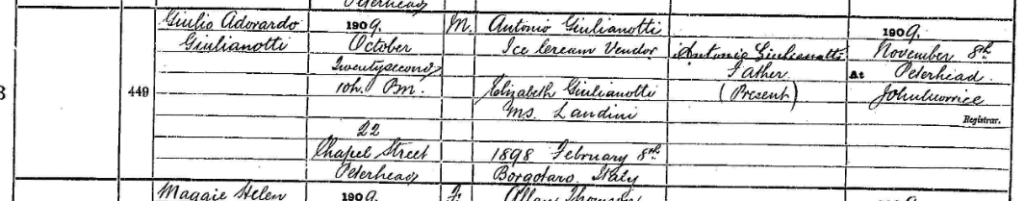 Peterhead
Giulio Adorardo 1909. M. Antonio Giulianotti 1909.
Giulianotti October Ice Cream Vendor Antonio Giulianotti November 8th
Twentysecond Father At Peterhead.
449 10h. Pm. Elizabeth Giulianotti (Present)
Ms. Landini Registrar.
22
Chapel Street 1898 February 8th
Peterhead Borgotaro, Italy
Maggie Helen 1909. F. Allan Thomson 1909.